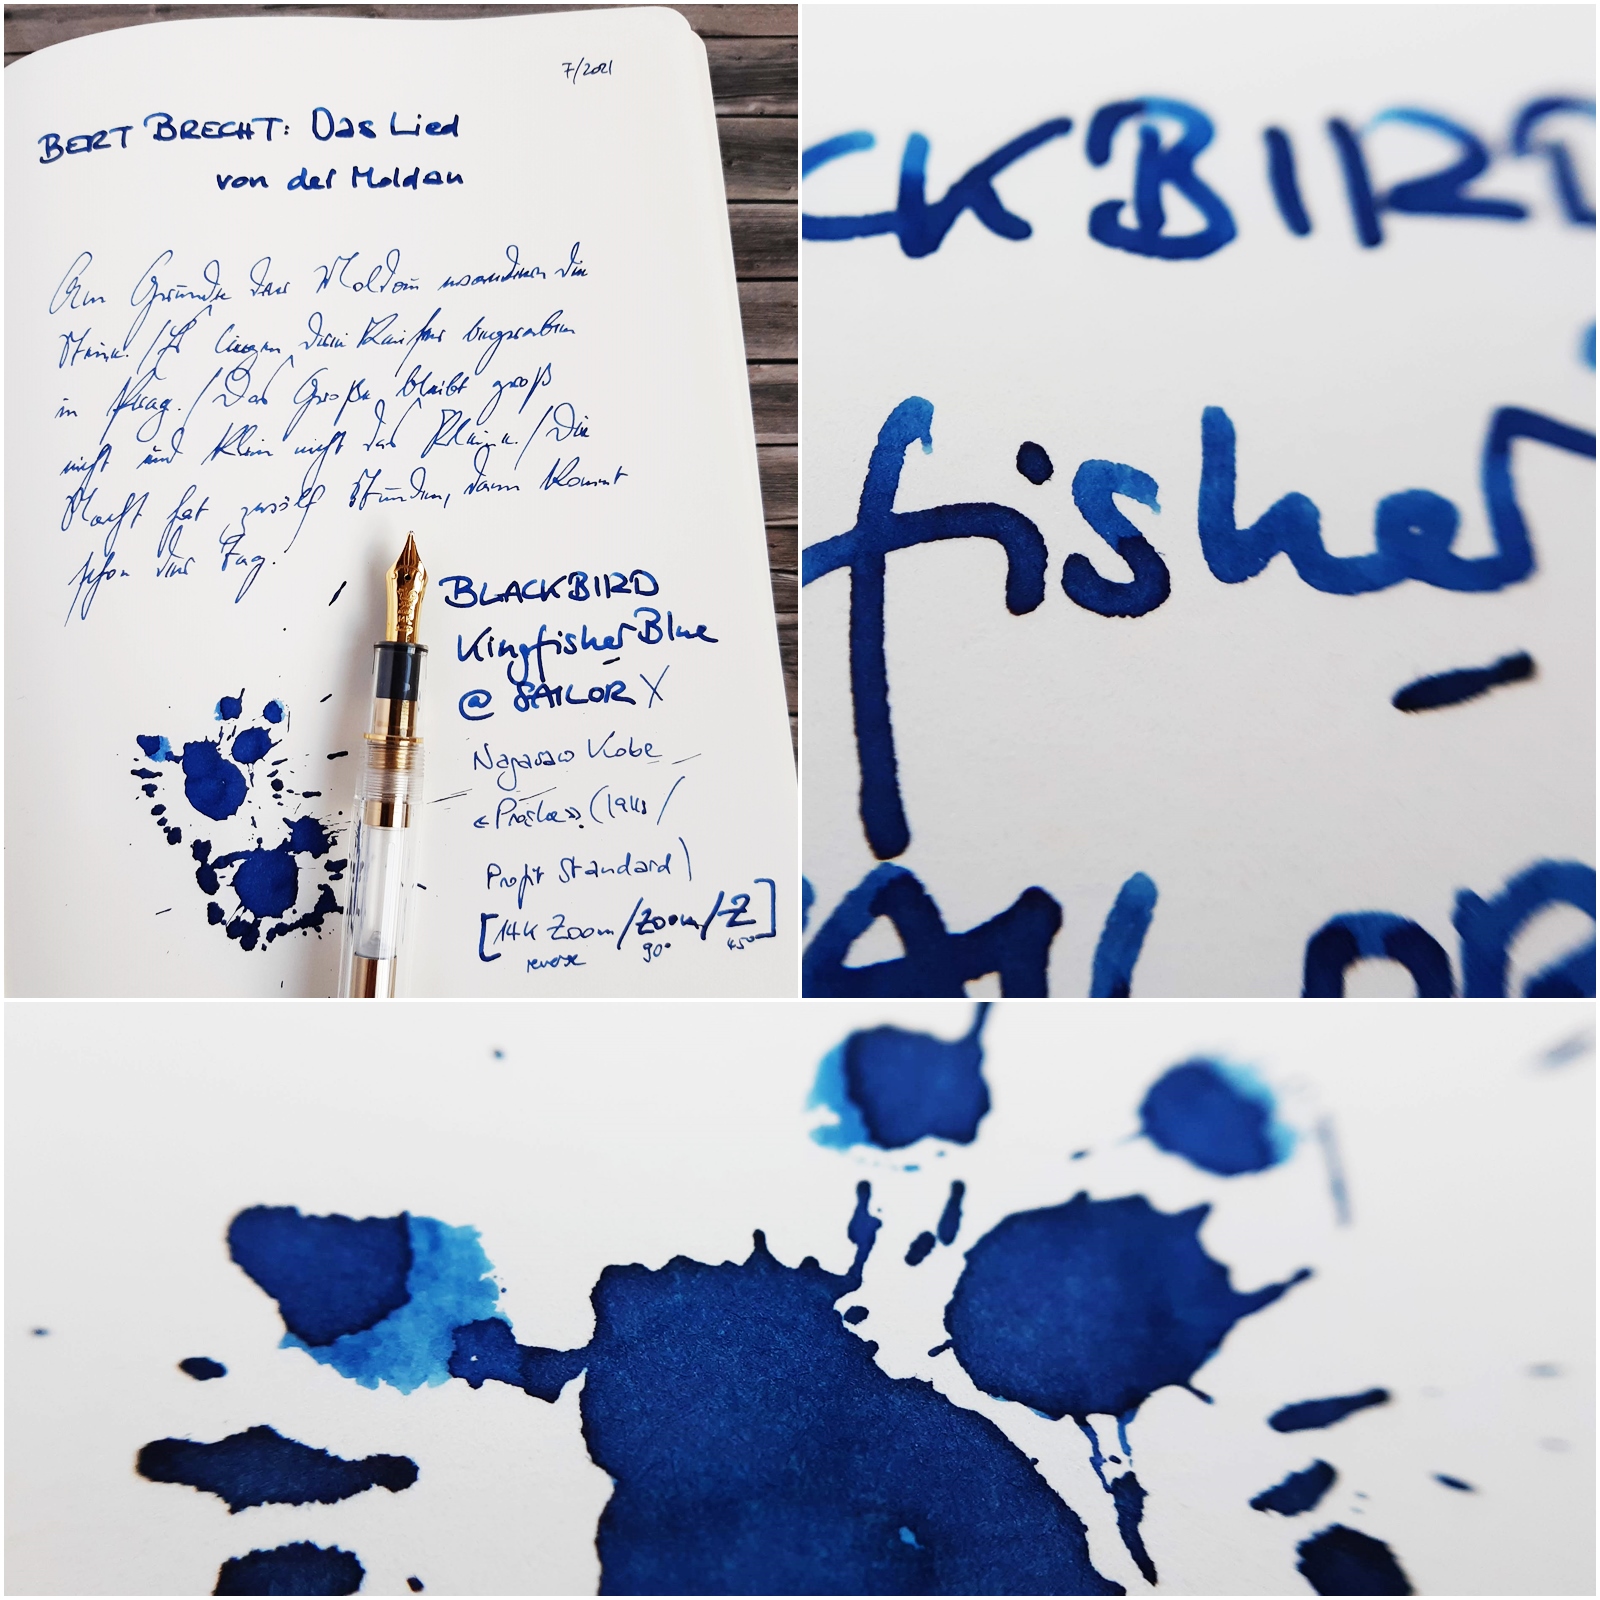 7/2021
BERT BRECHT: Das Lied
von der Moldau
Am Grunde der Moldau wandern die
Steine. / Es liegen drei Kaiser begraben
in Prag. / Das Große bleibt groß
nicht und klein nicht das Kleine. / Die
Nacht hat zwölf Stunden, dann kommt
schon der Tag.
BLACKBIRD
Kingfisher Blue
@ SAILOR X
Nagasawa Kobe
(19
Profit Standard)
[14K Zoom / Zoom / Z]
reverse 90° 45°
CKBIRD
fisher
AILOR